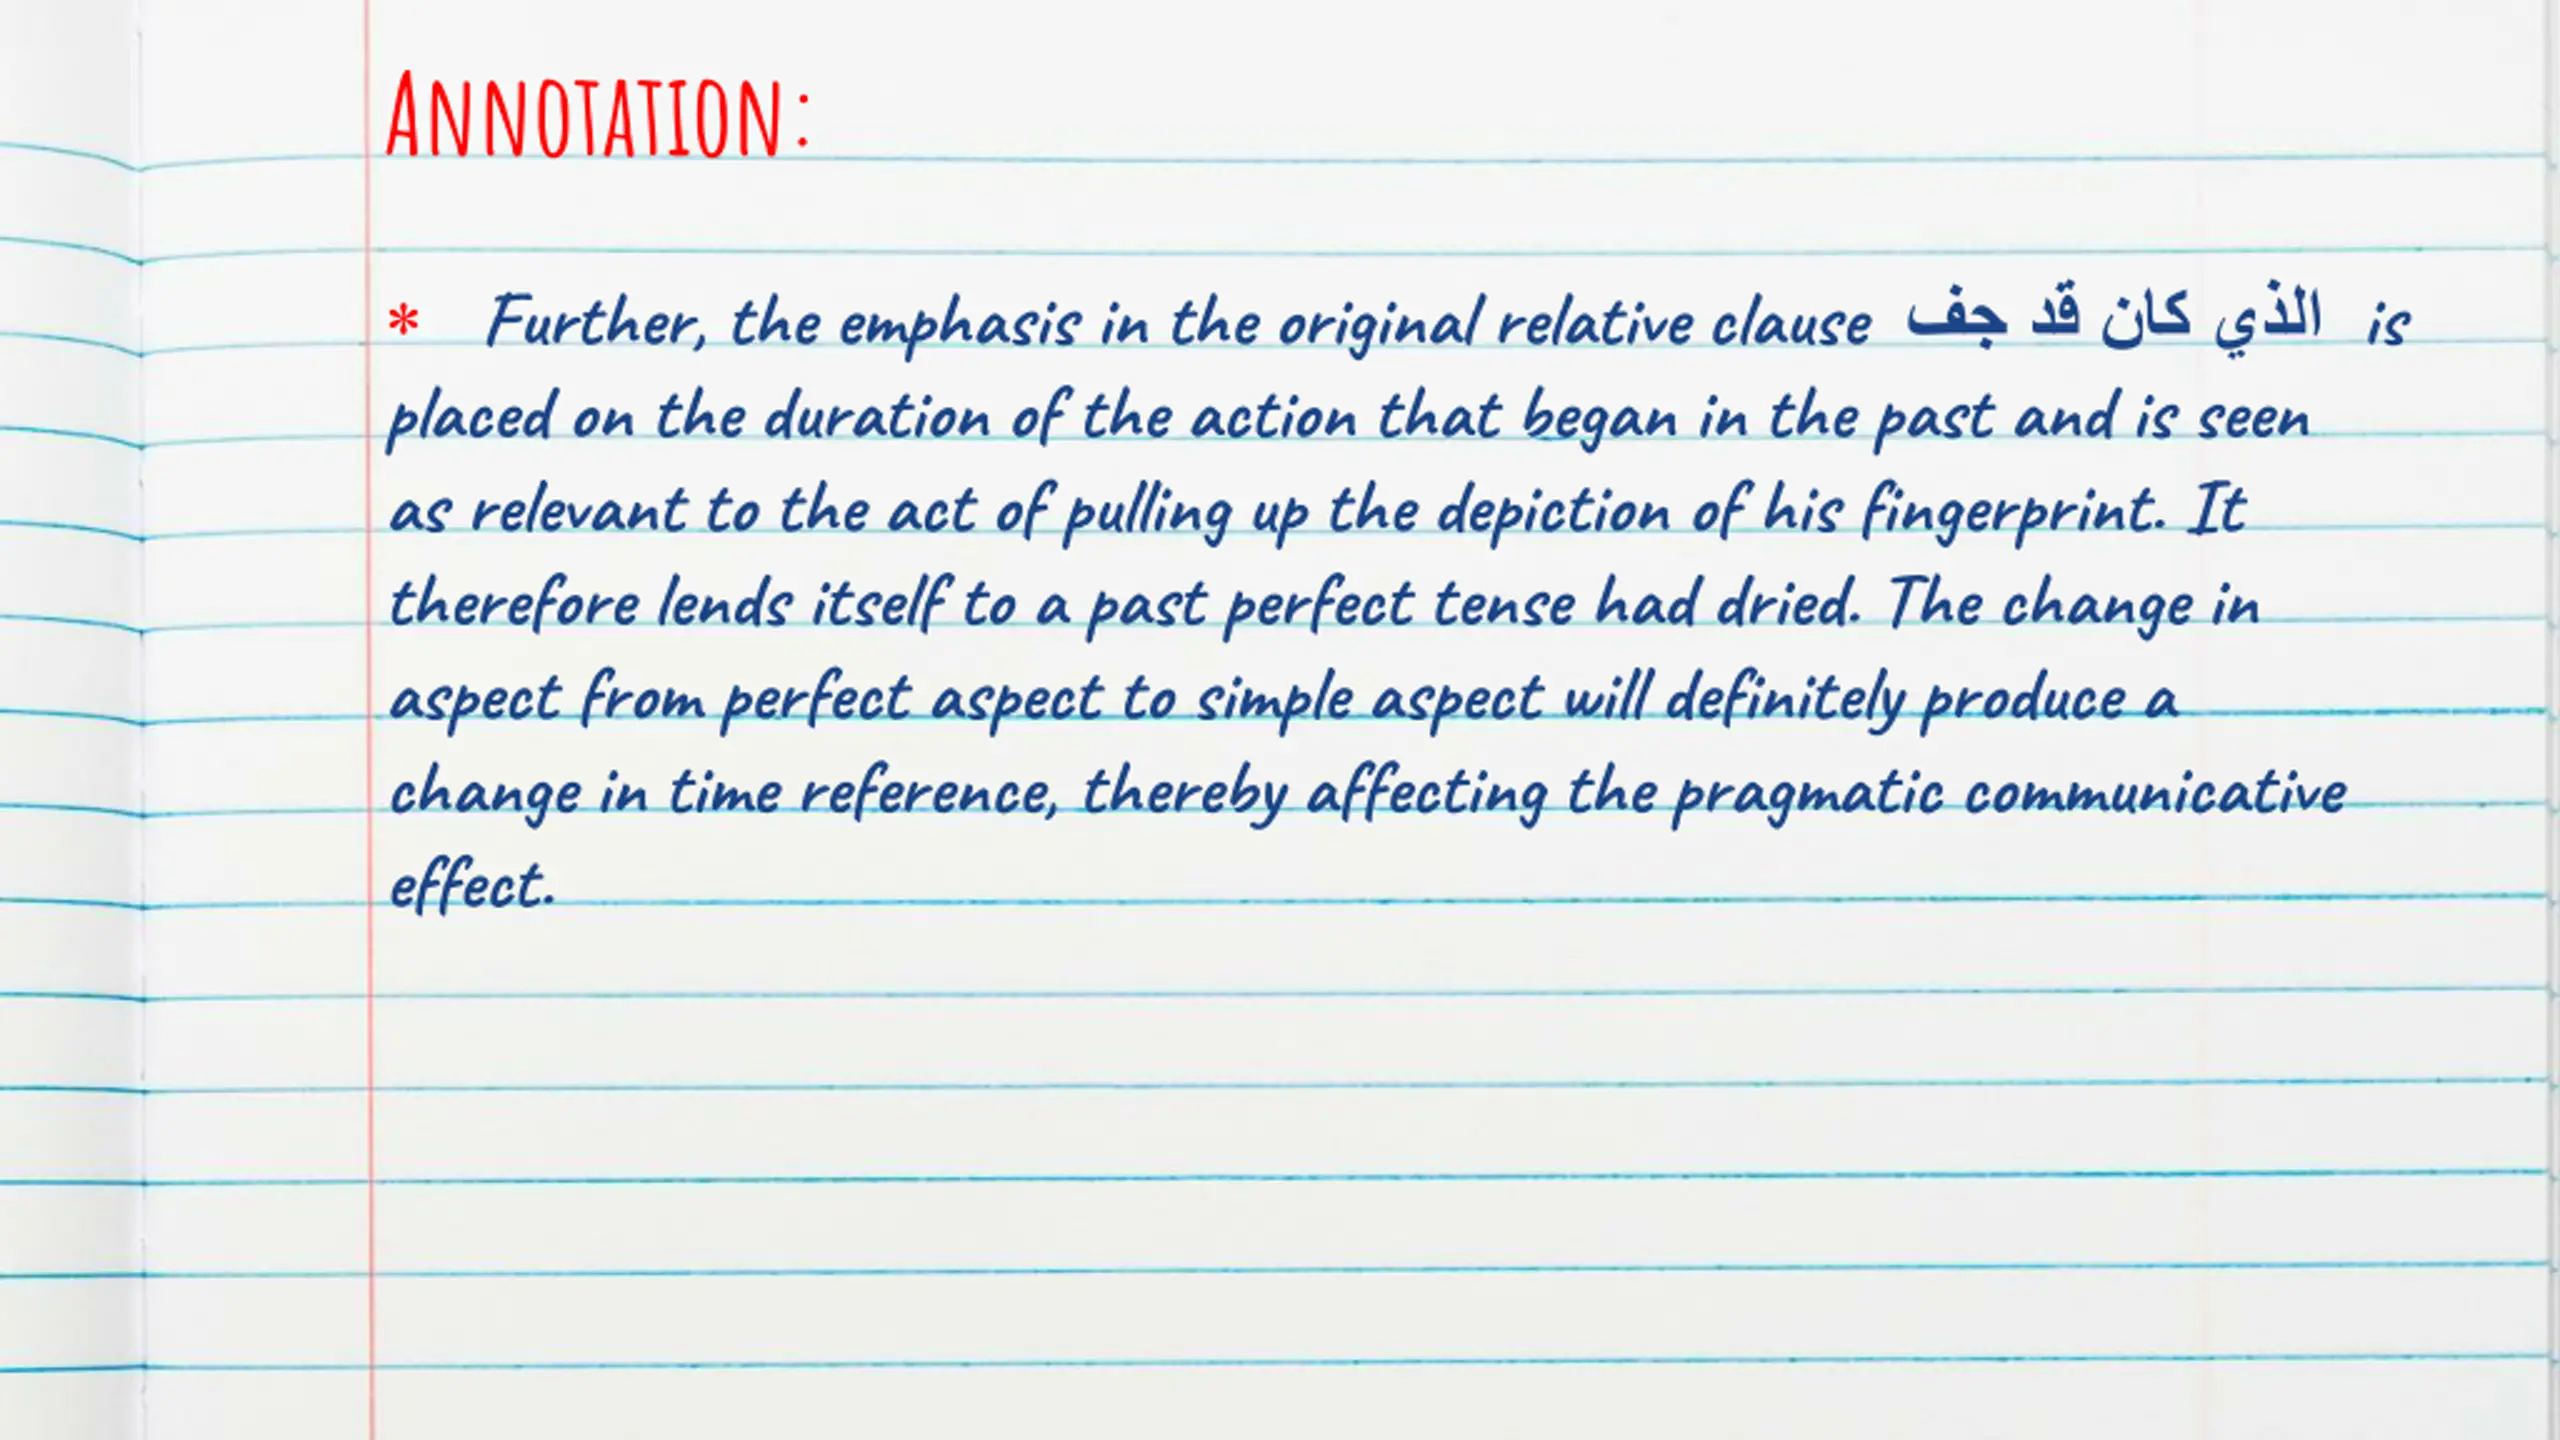 ANNOTATION:
* Further, the emphasis in the original relative clause الذي كان قد جف is
placed on the duration of the action that began in the past and is seen
as relevant to the act of pulling up the depiction of his fingerprint. It
therefore lends itself to a past perfect tense had dried. The change in
aspect from perfect aspect to simple aspect will definitely produce a
change in time reference, thereby affecting the pragmatic communicative
effect.